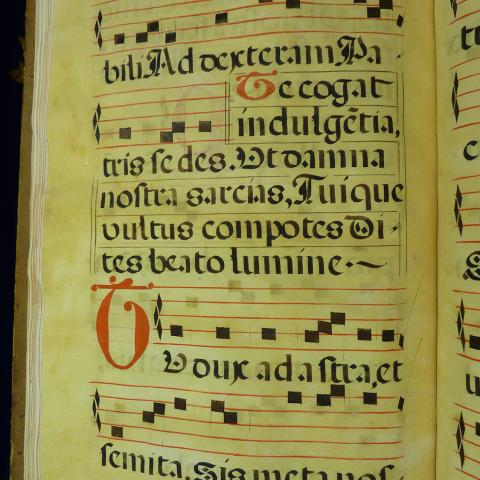 bili Ad dexteram Pa
Te cogat
indulgẽtia,
tris sedes. Vt damna
nostra sarcias, Tuique
vultus compotes Di-
tes beato lumine.
TU dux ad astra, et
semita, Sis meta nos-